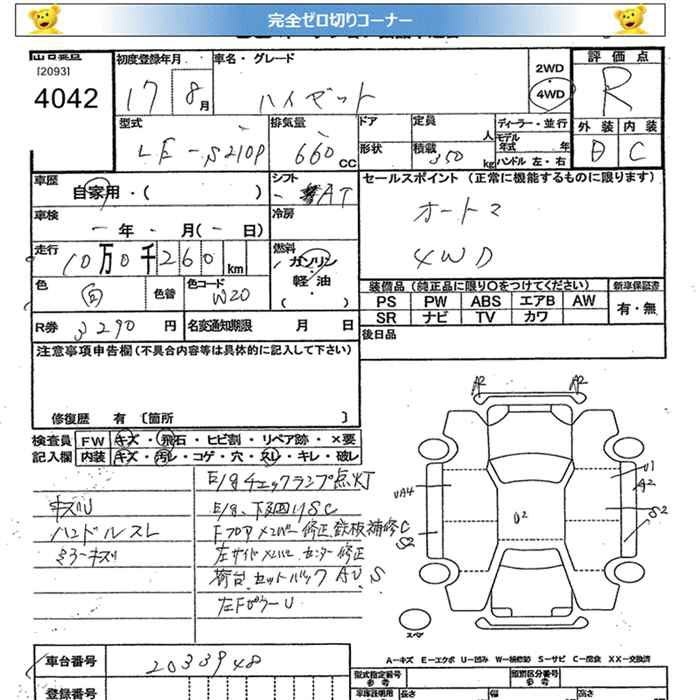 完全ゼロ切りコーナー
[2093]
4042
初度登録年月
17 8月
車名・グレード
ハイゼット
2WD
4WD
評価点
R
外装 内装
C
型式
LE-S210P
排気量
660 cc
ドア
形状
定員 人
積載 350 kg
ディーラー・並行
モデル年式 年
ハンドル 左・右
車歴
自家用・( )
シフト
AT
セールスポイント (正常に機能するものに限ります)
オートマ
4WD
車検
一年 - 月(- 日)
冷房
走行
10万0千260 km
燃料
ガソリン・
軽油・
( )
色
白
色替
色コード
W20
装備品 (純正品に限り○をつけてください)
新車保証書
PS PW ABS エアB AW
SR ナビ TV カワ
有・無
R券 290 円
名変通知期限 月 日
後日品
注意事項申告欄 (不具合内容等は具体的に記入して下さい)
修復歴 有 〔箇所 〕
検査員記入欄
FW キズ・飛石・ヒビ割・リペア跡・×要
内装 キズ・汚レ・コゲ・穴・スレ・キレ・破レ
E/gチェックランプ点灯
キズU
E/g、下廻りSC
ハンドルスレ
Fフロアメンバー修正、鉄板補修C
ミラーキズ
左サイドメンバー、センター修正
荷台、セットバックAU、S
左FピラーU
A2 A2
U1
A2
UA4
S2
S2
U2
スペア
A-キズ E-エクボ U-凹み W-補修跡 S-サビ C-腐食 XX-交換済
車台番号
2033948
登録番号
型式指定番号
参考
類別区分番号
参考
車庫証明用
参考
長さ
幅
高さ